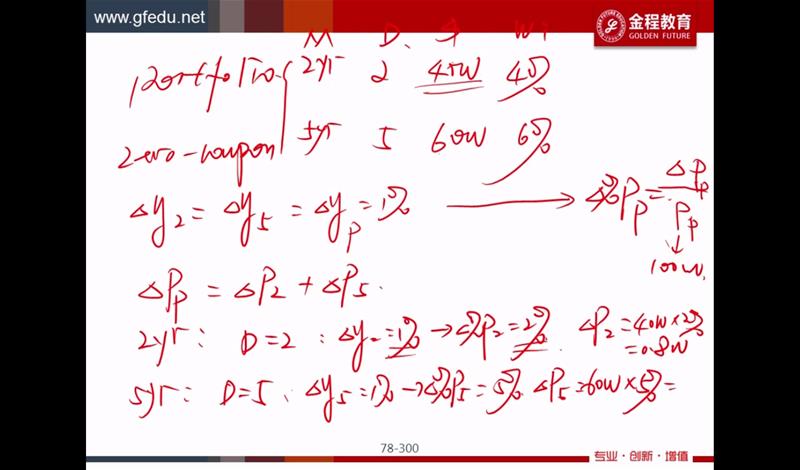 www.gfedu.net
金程教育
GOLDEN FUTURE
M D. wi
portfolio 2yr 2 40W 40%
zero-coupon 5yr 5 60W 60%
Δy2 = Δy5 = Δyp = 1% → Δ%Pp = ΔPp / Pp
↓
100W
ΔPp = ΔP2 + ΔP5.
2yr: D=2: Δy2=1% → Δ%P2=2% ΔP2=40W×2%
=0.8W
5yr: D=5. Δy5=1% → Δ%P5=5% ΔP5=60W×5%=
78-300
专业·创新·增值